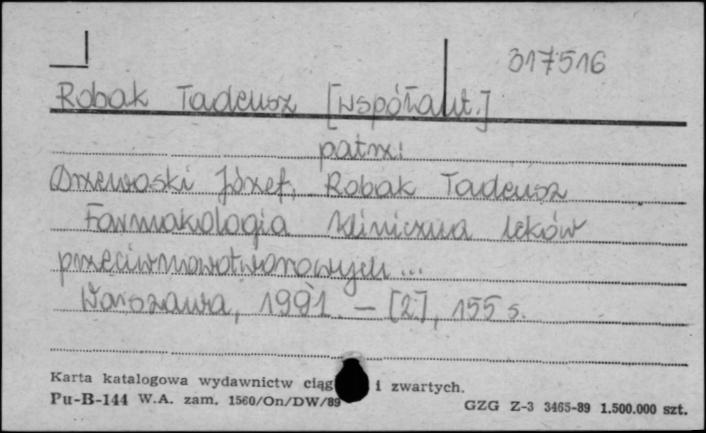 317516
Robak Tadeusz [współaut.]
patrz:
Drzewoski Józef, Robak Tadeusz
Farmakologia kliniczna leków
przeciwnowotworowych...
Warszawa, 1991. - [2], 155 s.
Karta katalogowa wydawnictw ciąg i zwartych.
Pu-B-144 W.A. zam. 1560/On/DW/89
GZG Z-3 3465-89 1.500.000 szt.